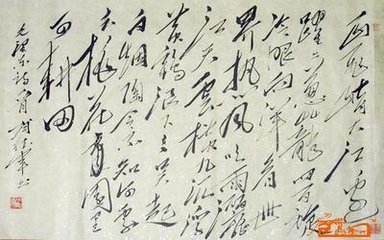 一山飞峙大江边
躍上葱茏四百旋
冷眼向洋看世
界热风吹雨洒
江天雲横九派浮
黄鹤浪下三吴起
白烟陶令不知何处
去桃花源里
可耕田
毛泽东诗一首